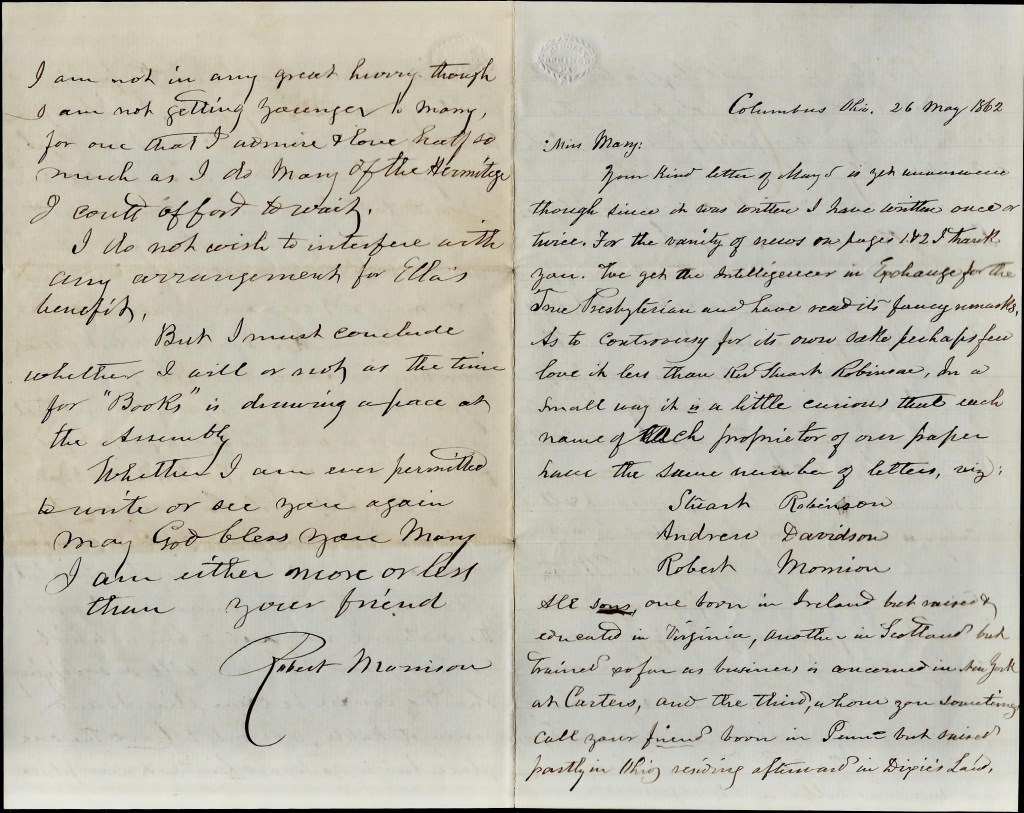 I am not in any great hurry though
I am not getting younger & Mary,
for one that I admire & love half so
much as I do Mary of the Hermitege
I could afford to wait.
I do not wish to interfere with
any arrangement for Ella's
benefit,
But I must conclude
whether I will or not as the time
for "Books" is drawing apace at
the Assembly
Whether I am ever permitted
to write or see you again
May God bless you Mary
I am either more or less
than your friend
Robert Morrison
Columbus Ohio. 26 May 1862
Miss Mary:
Your kind letter of May is yet
though since it was written I have written once or
twice. For the vanity of news on pages 1&2 I thank
you. I've get the Intelligencer in Exchange for the
True Presbyterian and have read its fancy remarks.
As to controversy for its own sake perhaps few
love it less than Rev Stuart Robinson, In a
small way it is a little curious that each
name of each proprietor of our paper
have the same number of letters, viz;
Stuart Robinson
Andrew Davidson
Robert Morrison
All sons, one born in Ireland but raised &
educated in Virginia, another in Scotland but
trained so far as business is concerned in New York
at Carters, and the third, whom you sometimes
call your friend born in Penna but raised
partly in Ohio residing afterward in Dixie's Land,